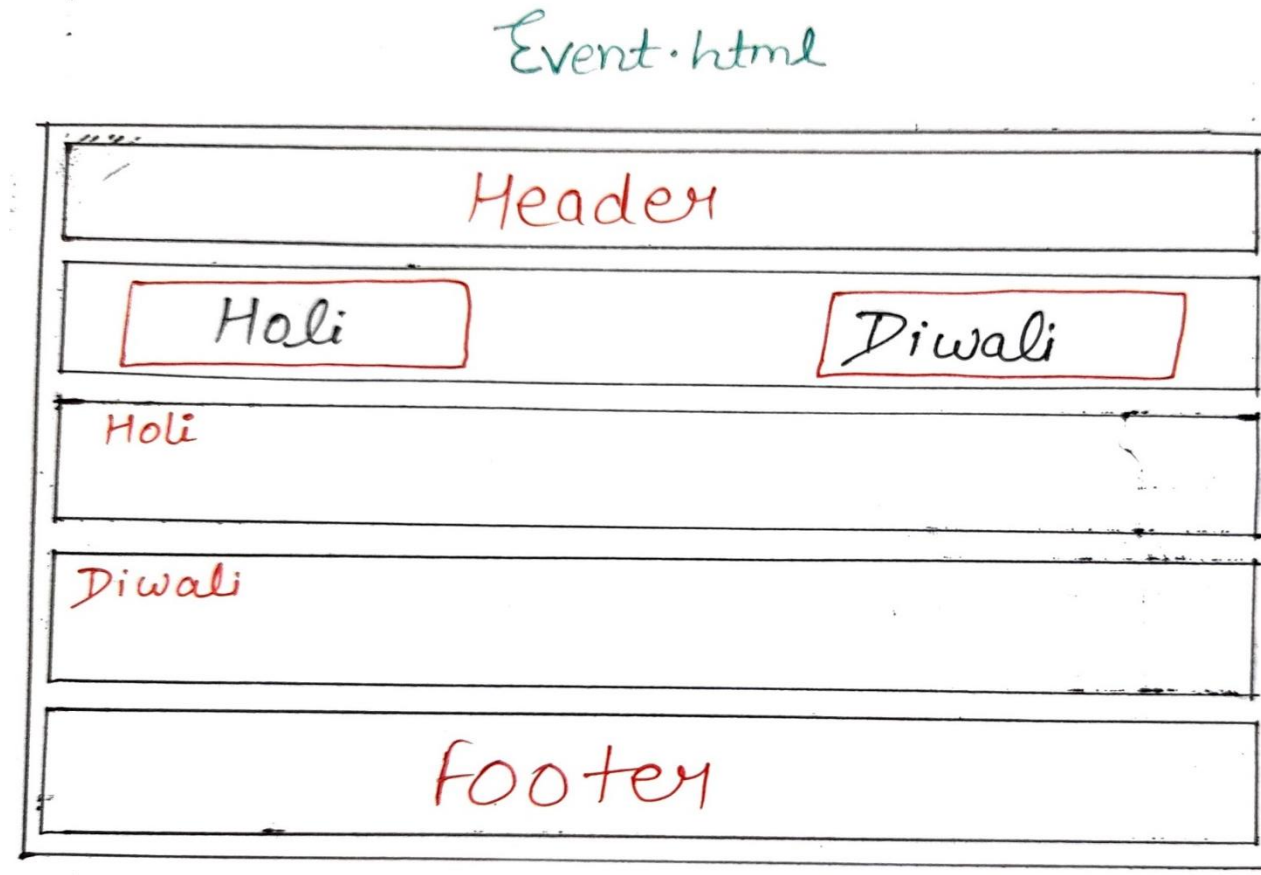 Event.html
Header
Holi Diwali
Holi
Diwali
Footer